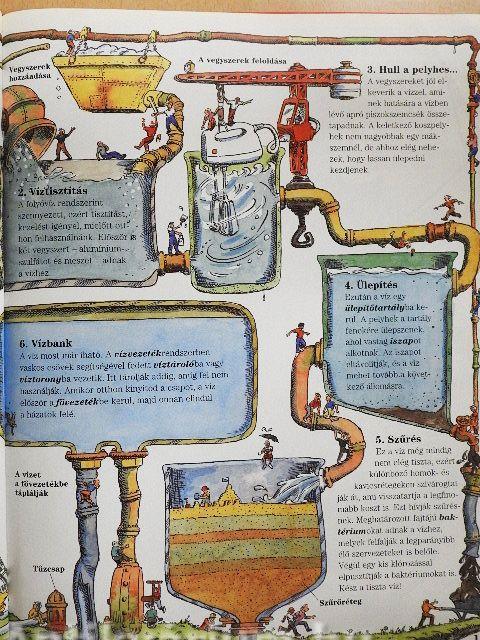 Vegyszerek
hozzáadása
A vegyszerek feloldása
2. Víztisztítás
A folyóvíz rendszerint
szennyezett, ezért tisztítást,
kezelést igényel, mielőtt ott-
hon felhasználnánk. Először is
két vegyszert – alumínium-
szulfátot és meszet – adnak
a vízhez.
3. Hull a pelyhes...
A vegyszereket jól el-
keverik a vízzel, ami-
nek hatására a vízben
lévő apró piszokszemcsék össze-
tapadnak. A keletkező koszpely-
hek nem nagyobbak egy mák-
szemnél, de ahhoz elég nehe-
zek, hogy lassan ülepedni
kezdjenek.
4. Ülepítés
Ezután a víz egy
ülepítőtartályba ke-
rül. A pelyhek a tartály
fenekére ülepszenek,
ahol vastag iszapot
alkotnak. Az iszapot
eltávolítják, és a víz
mehet tovább a követ-
kező állomásra.
5. Szűrés
Ez a víz még mindig
nem elég tiszta, ezért
különböző homok- és
kavicsrétegeken szivárogtat-
ják át, ami visszatartja a legfino-
mabb koszt is. Ezt hívják szűrés-
nek. Meghatározott fajtájú bak-
tériumokat adnak a vízhez,
melyek felfalják a legparányibb
élő szervezeteket is belőle.
Végül egy kis klórozással
elpusztítják a baktériumokat is.
Kész a tiszta víz!
6. Vízbank
A víz most már iható. A vízvezetékrendszerben
vaskos csövek segítségével fedett víztárolóba vagy
víztoronyba vezetik. Itt tárolják addig, amíg fel nem
használják. Amikor otthon kinyitod a csapot, a víz
először a fővezetékbe kerül, majd onnan elindul
a házatok felé.
A vizet
a fővezetékbe
táplálják
Tűzcsap
Szűrőréteg